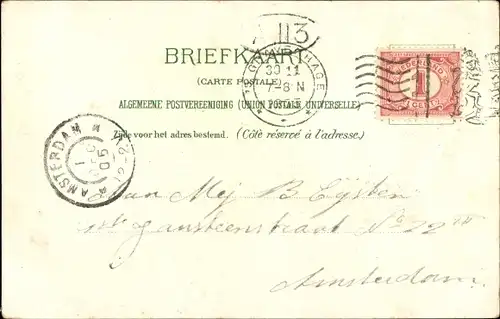 113
BRIEFKAART
(CARTE POSTALE)
ALGEMEENE POSTVEREENIGING (UNION POSTALE UNIVERSELLE)
Zijde voor het adres bestemd. (Côté réservé à l'adresse.)
'S GRAVENHAGE
30 11
7-8 N
NEDERLAND
1
CENT
AMSTERDAM
Aan Mej B Eijsten
Amsterdam.